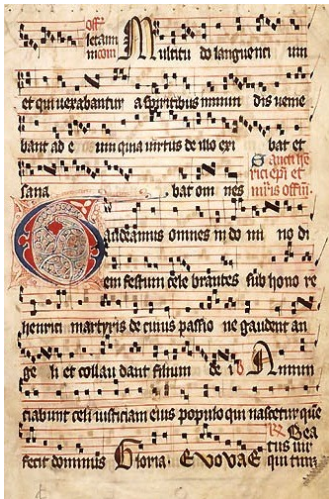 off
letam Multitu do languenti um
incom
et qui uexabantur a spiritibus inmun dis uenie
bant ad e um quia uirtus de illo exi bat et
Sancti hen
rici epi et
sana bat om nes mris offm.
Gaudeamus omnes in do mi no di
em festum cele brantes sub hono re
henrici martyris de cuius passio ne gaudent an
ge li et collau dant filium de i Annun
ciabunt celi iusticiam eius populo qui nascetur que
Bea
tus uir
fecit dominus Gloria. Evovae qui tim